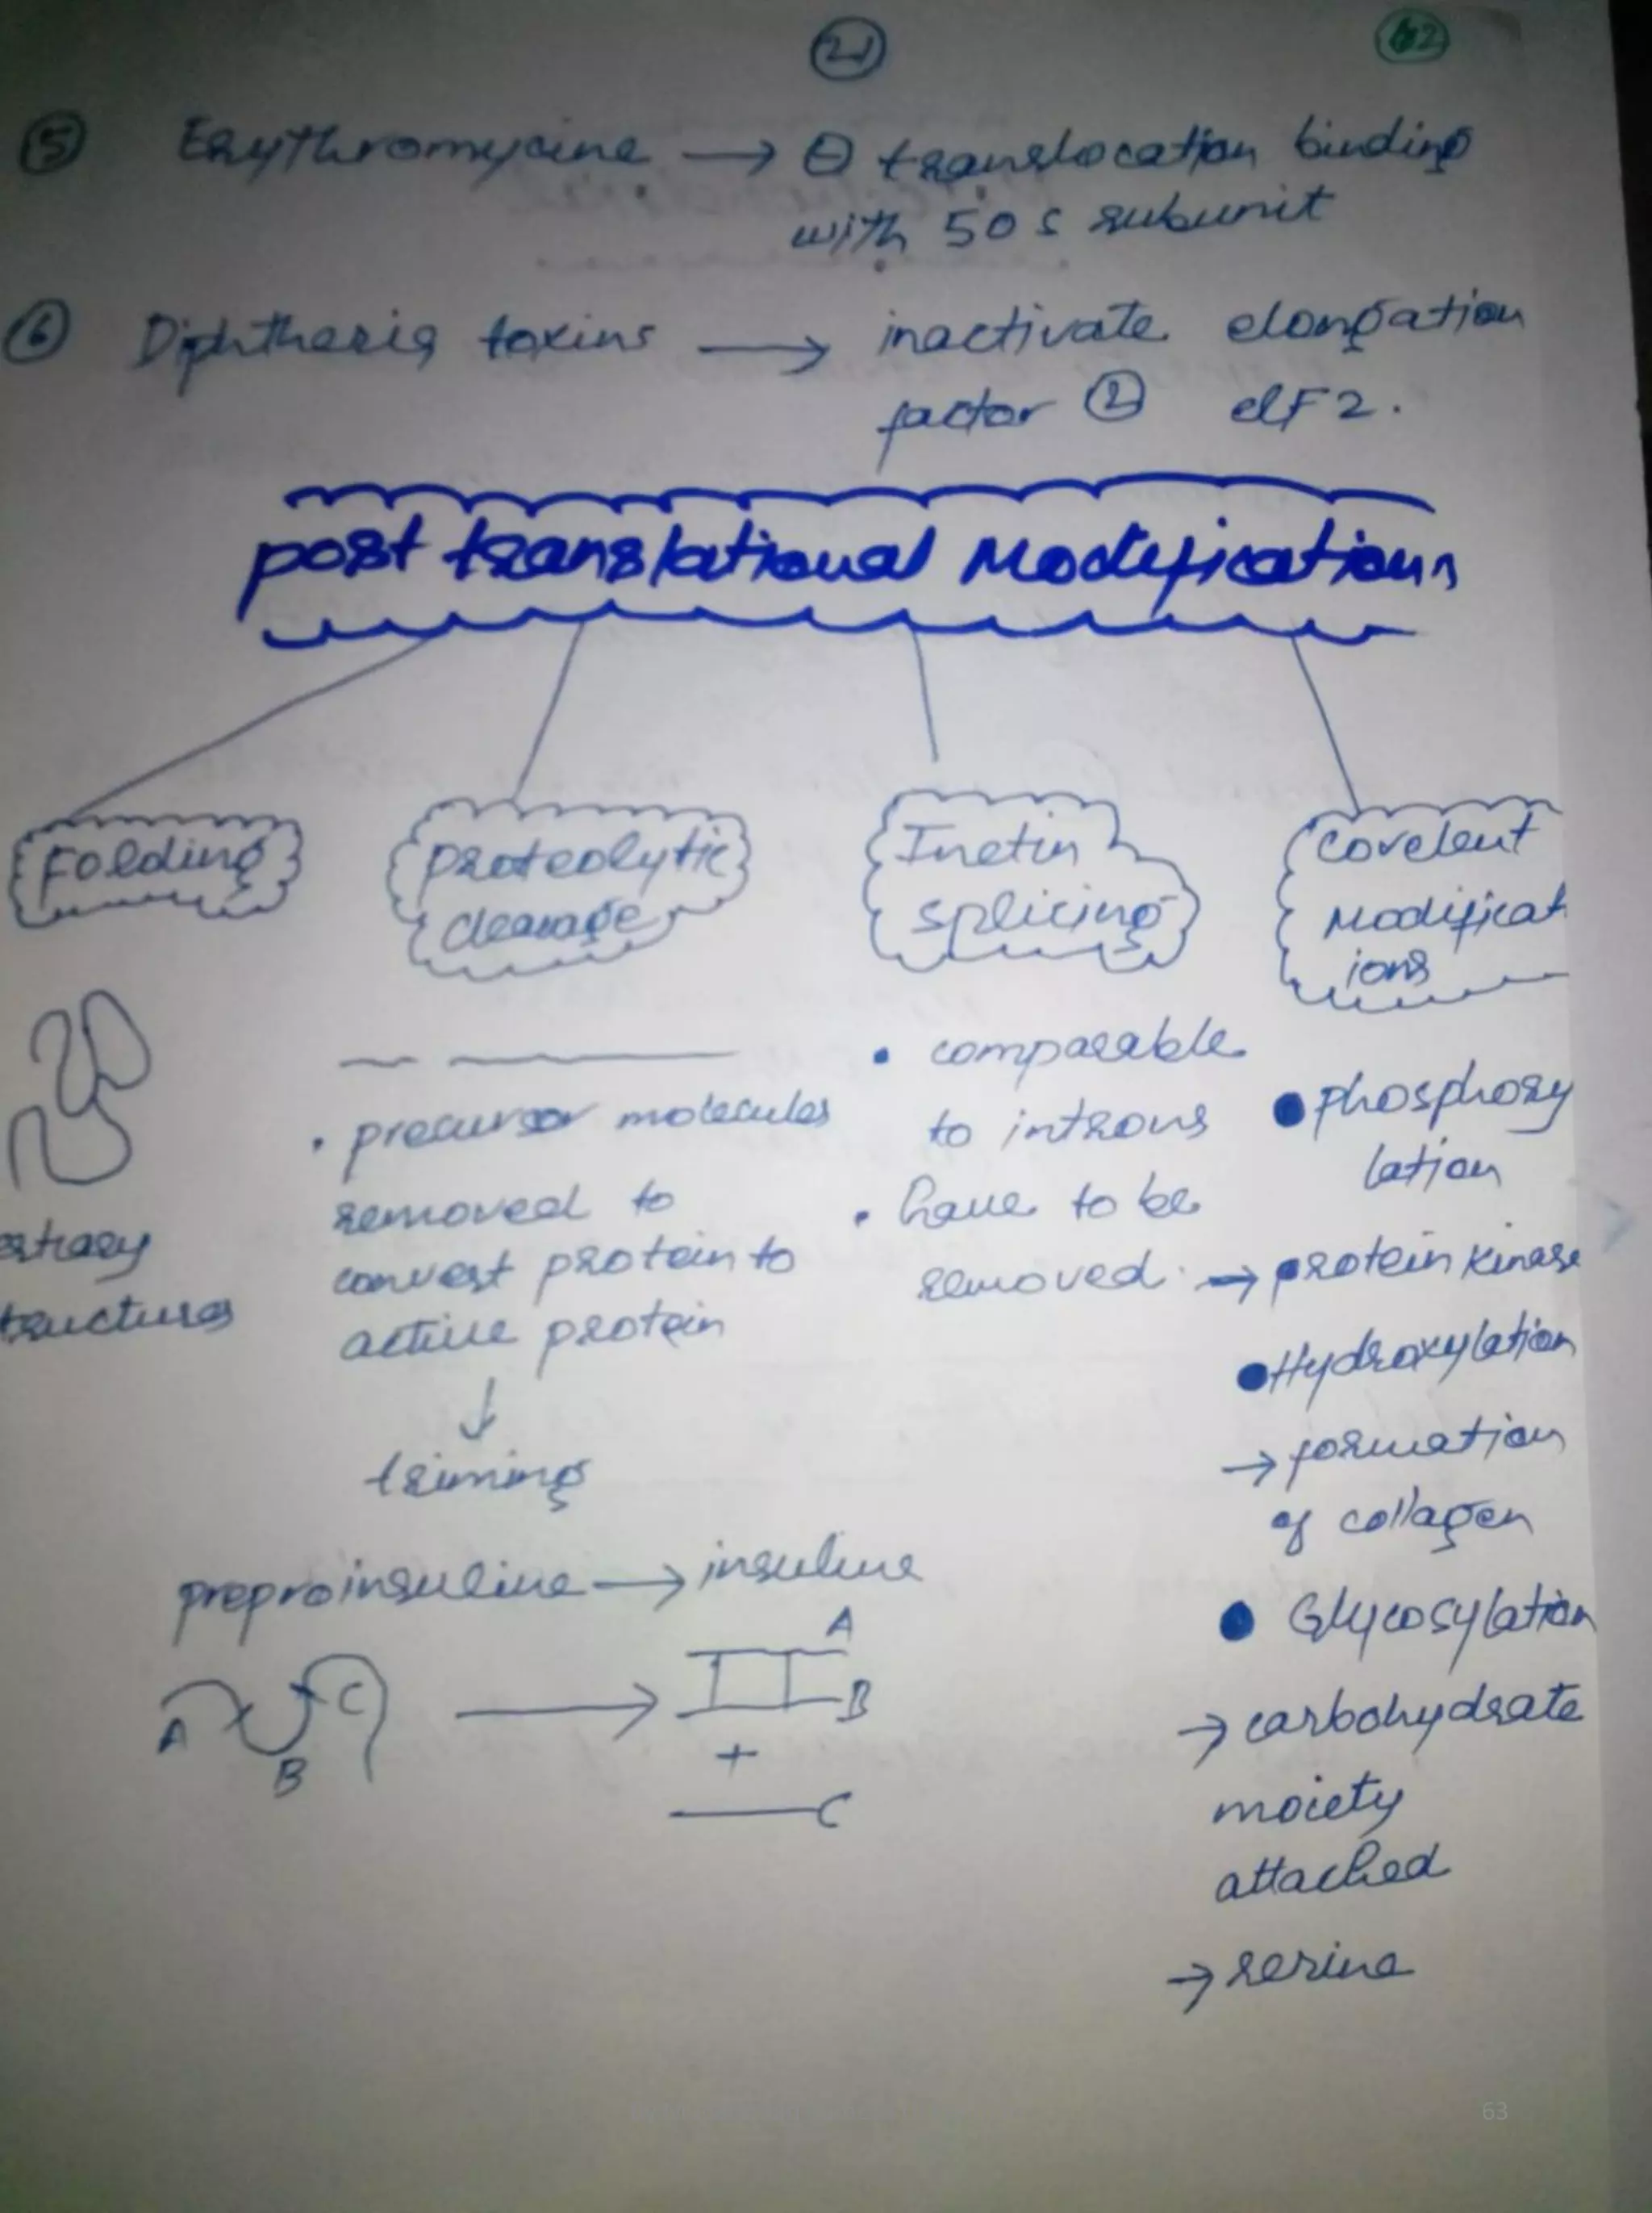 21
62
5 Erythromycine → ⊖ translocation binding
with 50 s subunit
6 Diphtheria toxins → inactivate elongation
factor 2 elF2.
post translational Modifications
Folding
estiary
tructures
Proteolytic
cleavage
• precursor molecules
removed to
convert protein to
active protein
↓
triming
preproinsuline → insuline
A B C →
A
B
+
C
Inetin
splicing
• comparable
to introns
• have to be
removed.
Covelent
Modificat
ions
• phosphory
lation
→ protein kinase
• Hydroxylation
→ formation
of collagen
• Glycosylation
→ carbohydrate
moiety
attached
→ serine
63